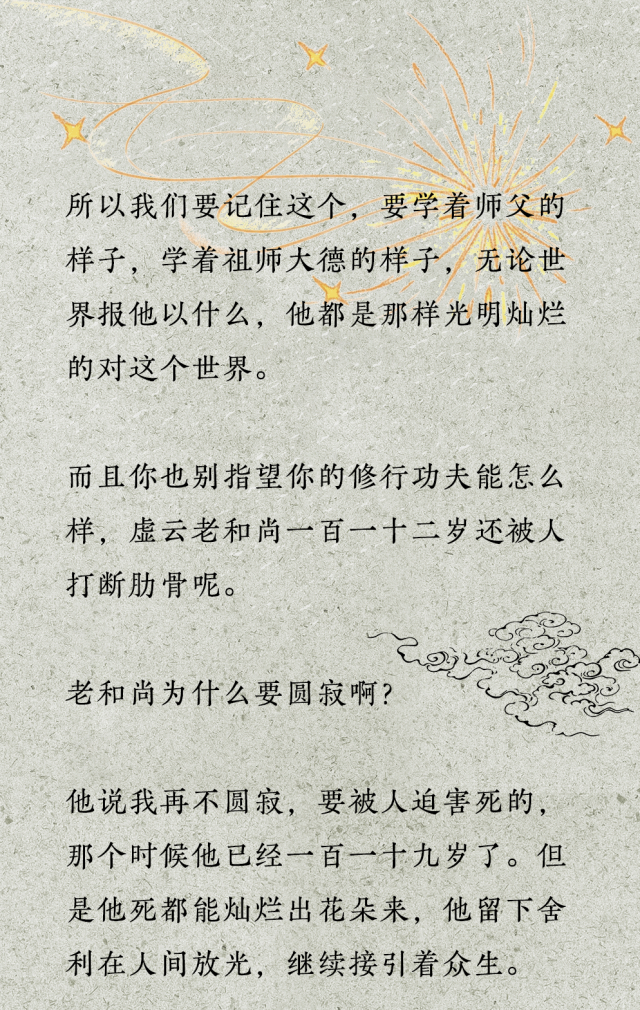 所以我们要记住这个，要学着师父的
样子，学着祖师大德的样子，无论世
界报他以什么，他都是那样光明灿烂
的对这个世界。
而且你也别指望你的修行功夫能怎么
样，虚云老和尚一百一十二岁还被人
打断肋骨呢。
老和尚为什么要圆寂啊？
他说我再不圆寂，要被人迫害死的，
那个时候他已经一百一十九岁了。但
是他死都能灿烂出花朵来，他留下舍
利在人间放光，继续接引着众生。